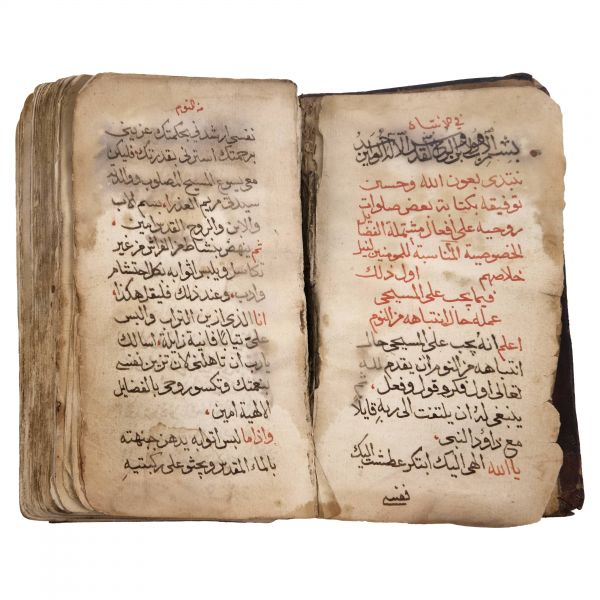 في الانتباه
بسم الاب والابن والروح القدس الاله الواحد
نبتدي بعون الله وحسن
توفيقه بكتابة بعض صلوات
روحيه على أفعال مشتملة الفضايل
الخصوصية المناسبة للمومنين لنيل
خلاصهم اول ذلك
فيما يجب على المسيحي
عمله حال انتباهه من النوم
اعلم انه يجب على المسيحي حال
انتباهه من النوم أن يقدم لله
تعالى اول فكر وقول وفعل،
ينبغي له ان يلتفت الى ربه قايلا
مع داود النبي،
يا الله الهي اليك ابتكر عطشت اليك
نفسي
من النوم
نفسي ارشدني بحكمتك عزيني
برحمتك استرني بقدرتك فليكن
معي يسوع المسيح المصلوب ووالدته
سيدتي مريم العذراء، بسم الاب
والابن والروح القدس امين،
ثم ينهض بنشاط من الفراش من غير
تكاسل ويلبس اثوابه بكل احتشام
وادب، وعند ذلك فليقل هكذا،
انا الذي ازين التراب والبس
على ثيابا فانية زايلة، اسالك
يا رب ان تاهلني لان تزين نفسي
بنعمتك وتكسو روحي بالفضايل
الالهية امين،
واذا ما لبس اثوابه يدهن جبهته
بالماء المقدس ويجثو على ركبتيه